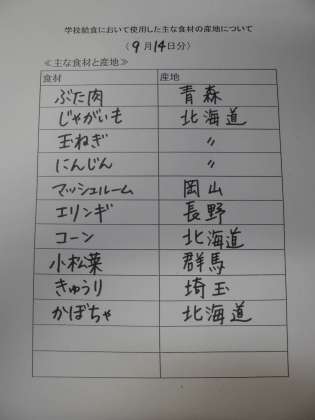 学校給食において使用した主な食材の産地について
（9月14日分）
≪主な食材と産地≫
食材 産地
ぶた肉 青森
じゃがいも 北海道
玉ねぎ 〃
にんじん 〃
マッシュルーム 岡山
エリンギ 長野
コーン 北海道
小松菜 群馬
きゅうり 埼玉
かぼちゃ 北海道